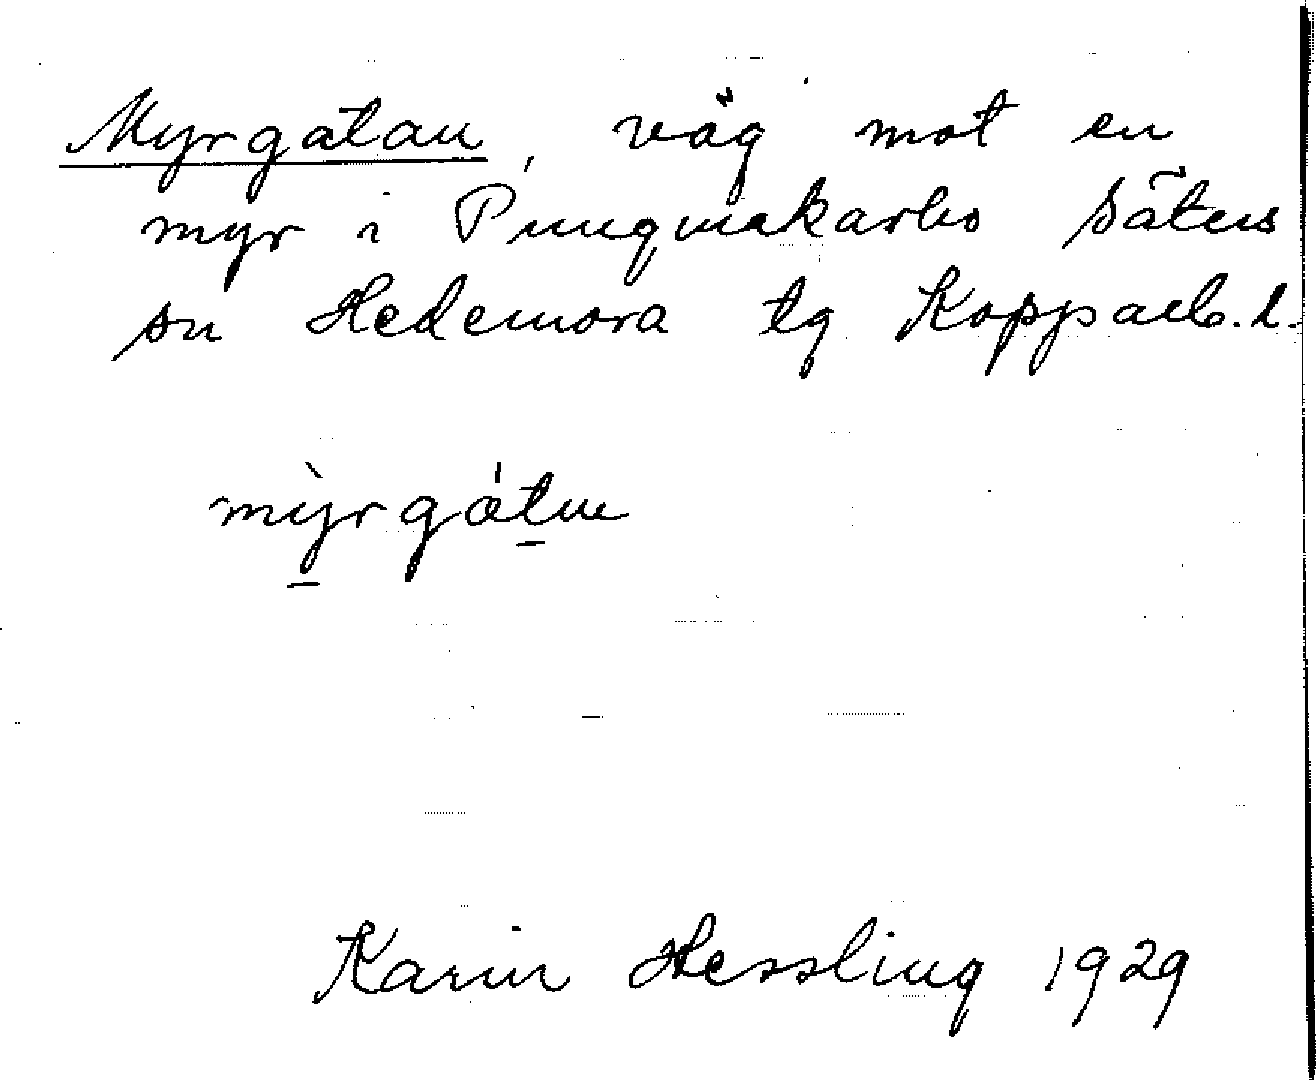 Myrgatan, väg mot en
myr i Pungmakarbo Säters
sn Hedemora tg Kopparb. l.
mỳrgátne
Karin Hessling 1929